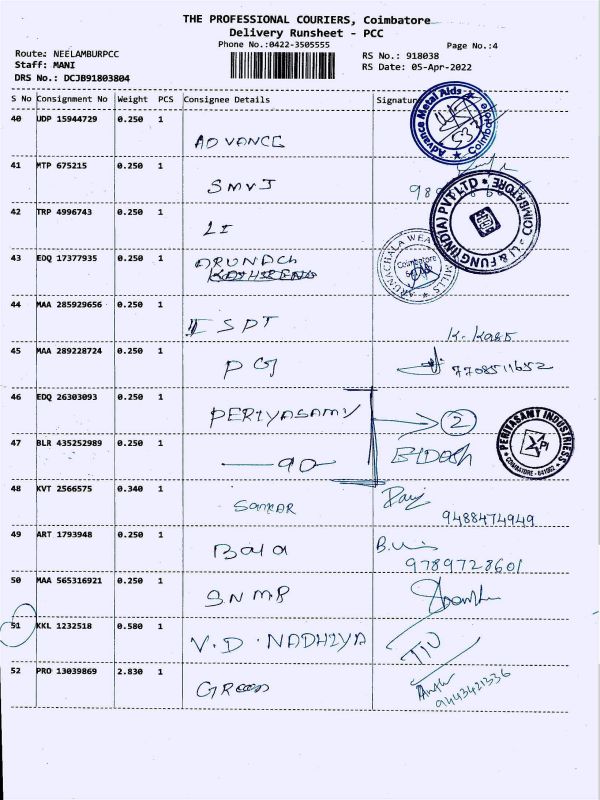 THE PROFESSIONAL COURIERS, Coimbatore
Delivery Runsheet - PCC
Phone No.:0422-3505555 Page No.:4
Route: NEELAMBURPCC RS No.: 918038
Staff: MANI RS Date: 05-Apr-2022
DRS No.: DCJB91803804
S No Consignment No Weight PCS Consignee Details Signatur
40 UDP 15944729 0.250 1
ADVANCE
Advance Metal Aids Coimbatore
41 MTP 675215 0.250 1
SMVJ
42 TRP 4996743 0.250 1
LI
LI & FUNG (INDIA) PVT LTD COIMBATORE
43 EDQ 17377935 0.250 1
ARUNACh
ARUNACHALA WEA MILLS
Coimbatore
44 MAA 285929656 0.250 1
ISPT
K. Kasb
45 MAA 289228724 0.250 1
PG 7708511652
46 EDQ 26303093 0.250 1
PERIYASAMY 2
PERITASANT INDUSTRIESS
SPI
COIMBATORE - 641062
47 BLR 435252989 0.250 1
48 KVT 2566575 0.340 1
Sankar
9488474949
49 ART 1793948 0.250 1
Bala
9789728601
50 MAA 565316921 0.250 1
SNMP
51 KKL 1232518 0.580 1
V.D. NADHIYA
52 PRO 13039869 2.830 1
Green 9443421336